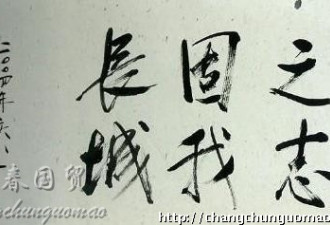 之志
固我
長城
二〇〇四年
春国贸
chunguomao
http://changchunguomao